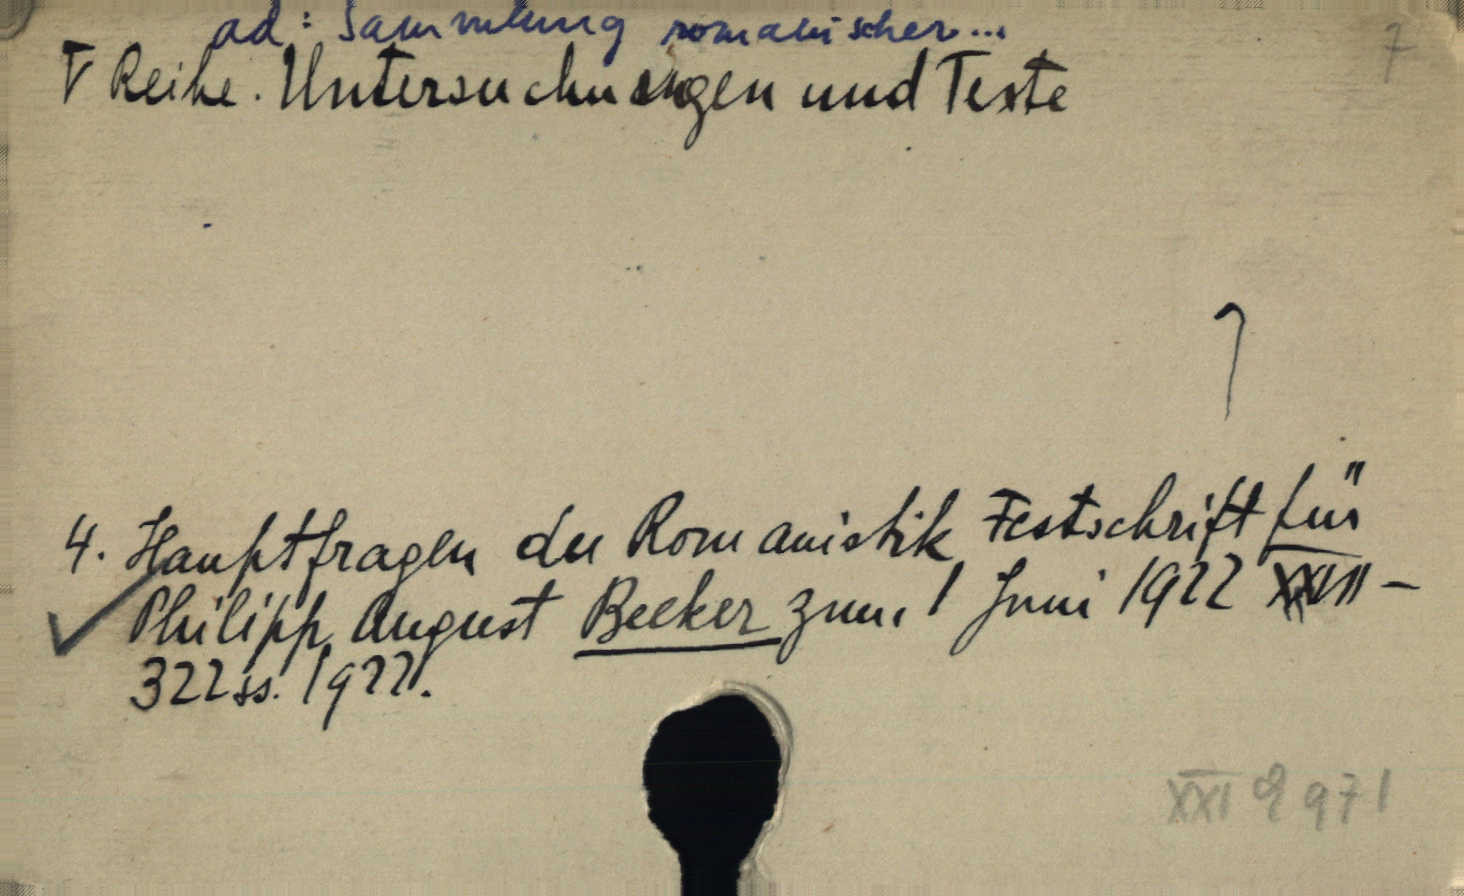 ad: Sammlung romanischer...
7
V Reihe. Untersuchungen und Texte
4. Hauptfragen der Romanistik Festschrift für
Philipp August Becker zum 1 Juni 1922 XXVII –
322 ss. 1922.
XXI 971